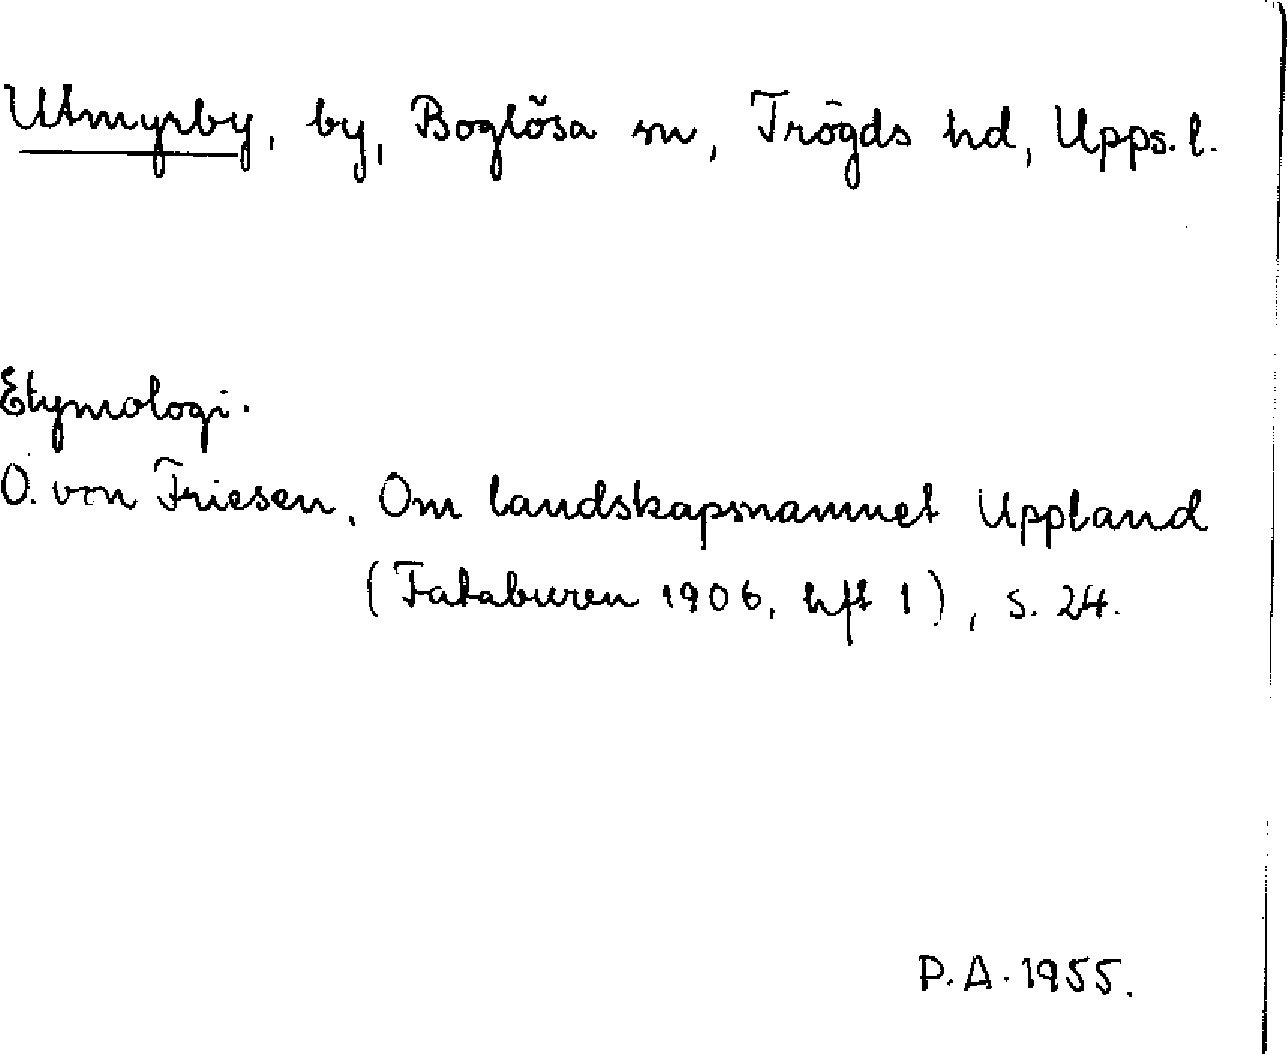 Utmyrby, by, Boglösa sn, Trögds hd, Upps. l.
Etymologi.
O. von Friesen, Om landskapsnamnet Uppland
(Fataburen 1906, hft 1), s. 24.
P.A. 1955.